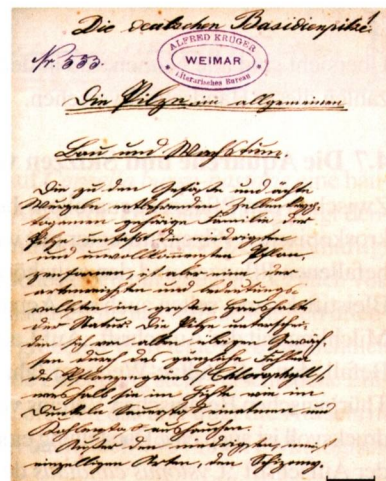 Die deutschen Basidienpilze.
1
Nr. 533.
ALFRED KRÜGER
WEIMAR
Literarisches Bureau
Die Pilze im allgemeinen
Bau und Wachstum.
Die zu den Gefäß- und ächte
Wurzeln entbehrenden Zellenkryp-
togamen gehörige Familie der
Pilze umfaßt die niedrigsten
und unvollkommensten Pflan-
zenformen, ist aber eine der
artenreichsten und bedeutungs-
vollsten im großen Haushalte
der Natur. Die Pilze unterschei-
den sich von allen übrigen Gewäch-
sen durch das gänzliche Fehlen
des Pflanzengrüns (Chlorophyll),
weshalb sie im
Dunkeln Sauerstoff einatmen und
Kohlensäure aushauchen.
Außer den niedrigsten, mit
einzelligen Arten, den